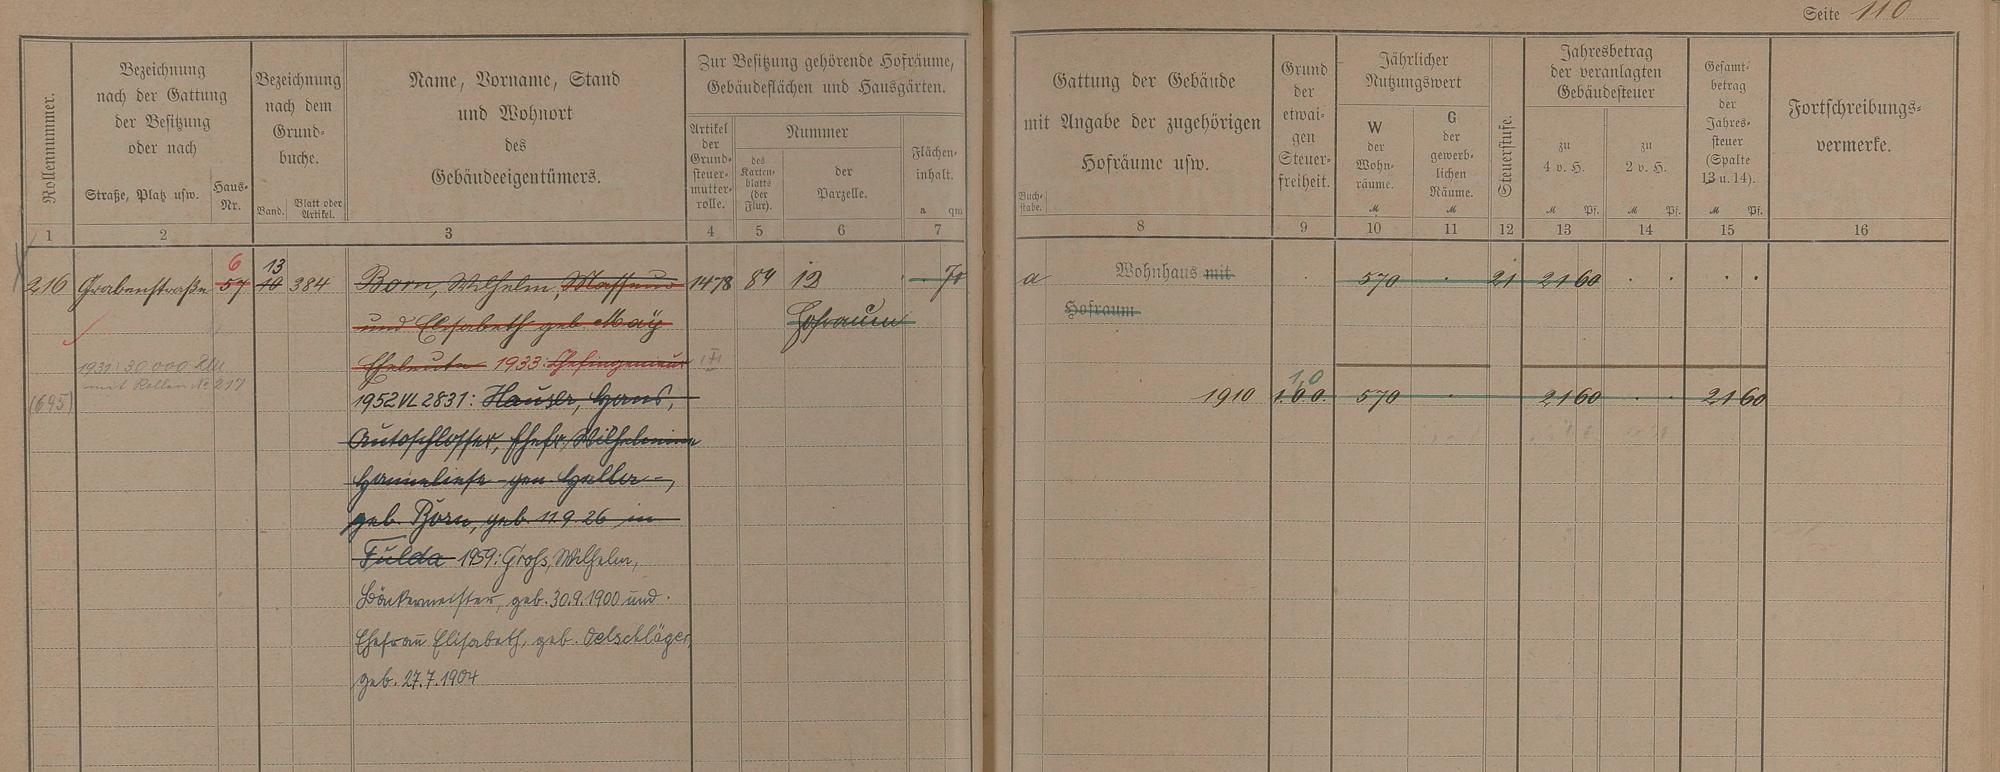 Seite 110
Rollennummer.
Bezeichnung
nach der Gattung
der Besitzung
oder nach
Straße, Platz usw.
Haus-
Nr.
Bezeichnung
nach dem
Grund-
buche.
Band.
Blatt oder
Artikel.
Name, Vorname, Stand
und Wohnort
des
Gebäudeeigentümers.
Zur Besitzung gehörende Hofräume,
Gebäudeflächen und Hausgärten.
Artikel
der
Grund-
steuer-
mutter-
rolle.
Nummer
des
Karten-
blatts
(der
Flur).
der
Parzelle.
Flächen-
inhalt.
a qm
Gattung der Gebäude
mit Angabe der zugehörigen
Hofräume usw.
Buch-
stabe.
Grund
der
etwai-
gen
Steuer-
freiheit.
Jährlicher
Nutzungswert
W
der
Wohn-
räume.
M
G
der
gewerb-
lichen
Räume.
M
Steuerstufe.
Jahresbetrag
der veranlagten
Gebäudesteuer
zu
4 v. H.
M Pf.
zu
2 v. H.
M Pf.
Gesamt-
betrag
der
Jahres-
steuer
(Spalte
13 u. 14).
M Pf.
Fortschreibungs-
vermerke.
1 2 3 4 5 6 7 8 9 10 11 12 13 14 15 16
6 13
216 Grabenstraße 57 10 384 Born, Wilhelm, Masseur 1478 84 12 70 a Wohnhaus mit 570 21 21 60
und Elisabeth geb. May Hofraum Hofraum
Eheleute 1933: Chefingenieur III
1931: 30 000 RM
mit Rollen No 217
(695) 1952 VL 2831: Hauser, Hans, 1910 1.0.0. 10 570 21 60 21 60
Autoschlosser, Ehefr. Wilhelmine
Hanneliese -gen Hella-,
geb. Born, geb. 11.9.26 in
Fulda 1959: Groß, Wilhelm,
Bäckermeister, geb. 30.9.1900 und
Ehefrau Elisabeth, geb. Oelschläger,
geb. 27.7.1904